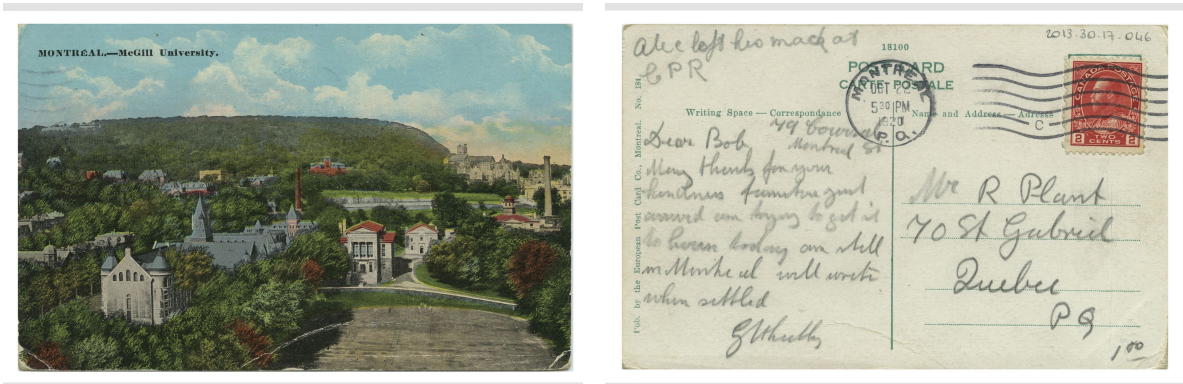 MONTREAL.—McGill University.
2013.30.17.046
left his mack at
C P R
18100
POST CARD
CARTE POSTALE
MONTREAL
OCT
5 30 PM
P.Q.
CANADA POSTAGE
2 TWO CENTS 2
C
Writing Space — Correspondence
Name and Address — Adresse
Pub. by the European Post Card Co., Montreal. No. 181
Montreal
Dear Bob
Many thanks for your
kindness furniture just
am trying to get it
today am still
in Montreal will write
when settled
Mr R Plant
70 St Gabriel
Quebec
P Q
1.00